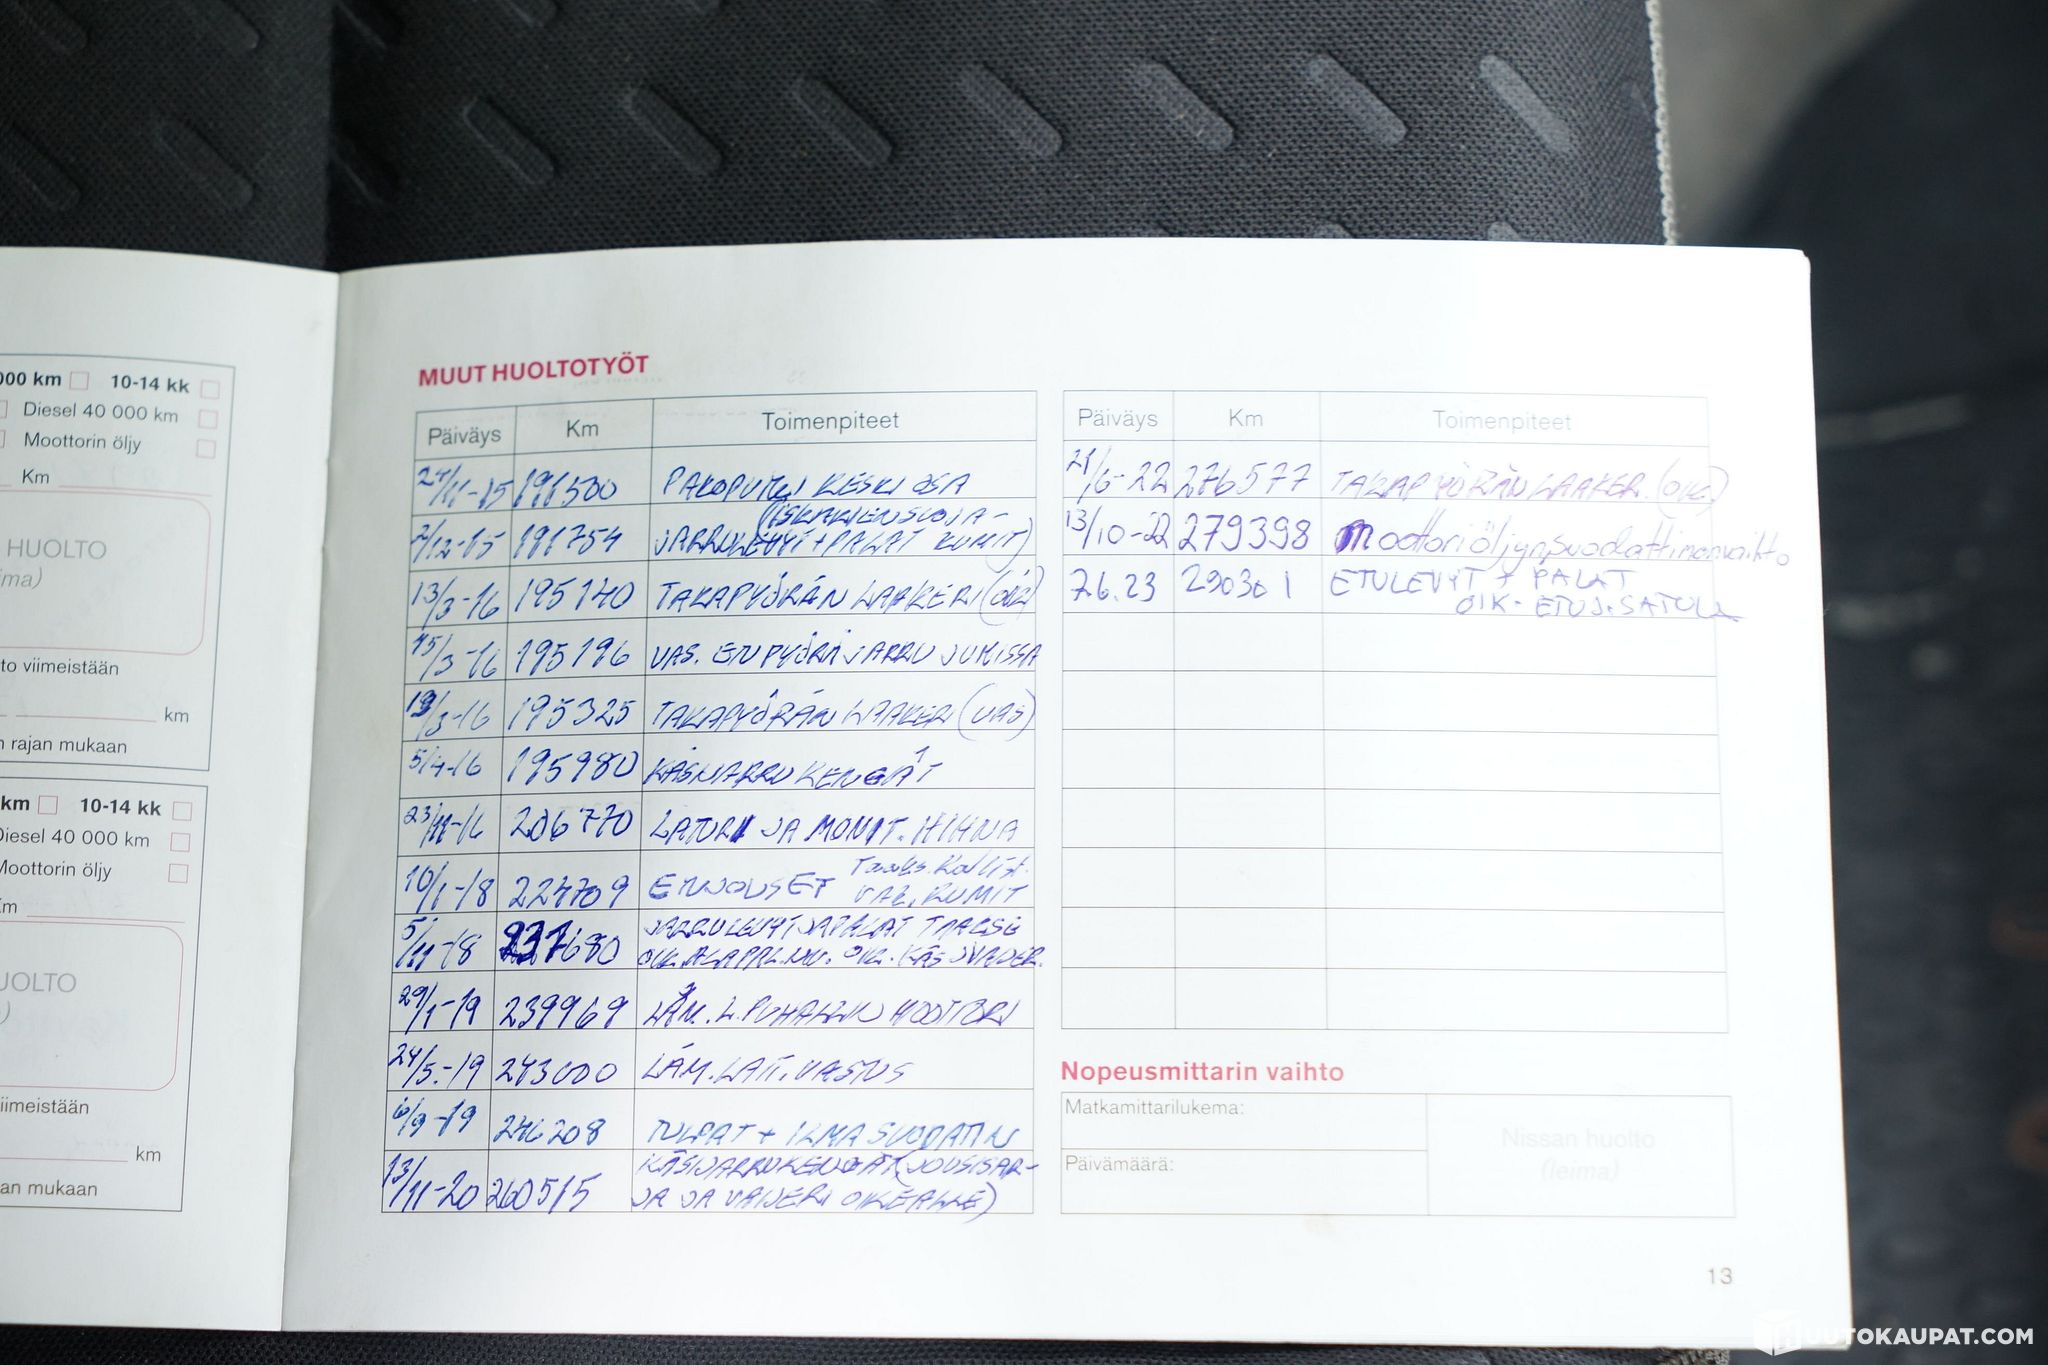 000 km 10-14 kk
Diesel 40 000 km
Moottorin öljy
Km
HUOLTO
to viimeistään
km
n rajan mukaan
km 10-14 kk
Diesel 40 000 km
Moottorin öljy
Km
km
an mukaan
MUUT HUOLTOTYÖT
Päiväys Km Toimenpiteet
24/11-15 191500 PAKOPUTKI KESKI OSA
(ISKARIEN SUOJA-
2/12-15 191754 JARRULEVYT + PALAT KUMIT)
13/3-16 195140 TAKAPYÖRÄN LAAKERI (OIK)
15/3-16 195196 VAS. ETUPYÖRÄ JARRU JUMISSA
19/3-16 195325 TAKAPYÖRÄN LAAKERI (VAS)
5/4-16 195980 KÄSIJARRU KENGÄT
23/11-16 206770 LATURI JA MONIT. HIHNA
10/1-18 224709 ETUJOUSET KUMIT
5/11-18 237680 JARRULEVYT JA PALAT TAAKSE
OIK. ALAPAL. OIK. KÄSIJ.
29/1-19 239969 LÄM. L. PUHALLIN MOOTTORI
24/5.-19 243000 LÄM. LAIT. VASTUS
6/9-19 246208 TULPAT + ILMASUODATIN
13/11-20 260515 KÄSIJARRUKENGÄT (JOUSISAR-
JA JA VAIJERI OIKEALLE)
Päiväys Km Toimenpiteet
21/6-22 276577 TAKAPYÖRÄN LAAKER. (OIK.)
13/10-22 279398 Moottoriöljynsuodattimenvaihto
7.6.23 290301 ETULEVYT + PALAT
OIK. ETUJ. SATULA
Nopeusmittarin vaihto
Matkamittarilukema:
Nissan huolto
(leima)
Päivämäärä:
13
HUUTOKAUPAT.COM